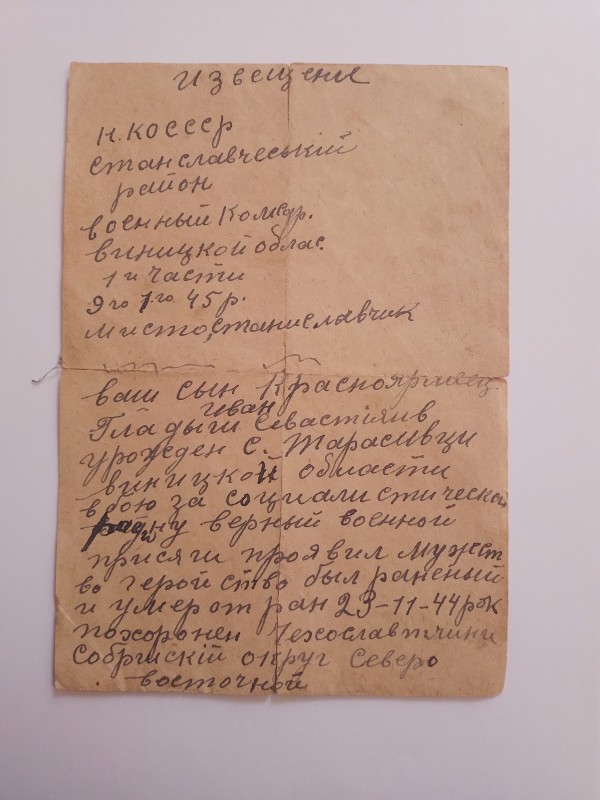 извещение
Н. КОСССР
станславчеський
район
военный Комедр.
виницкой облас.
1 и части
9го 1го 45 р.
мисто, станиславчик
ваш сын Красноярмеец
Иван
Гладыш Севастіянв
урожден с. Тарасивци
виницкой области
в бою за социалистической
родину верный военной
присяги проявил мужест
во геройство был раненый
и умер от ран 23-11-44 рок
похоронен
округ Северо
восточной